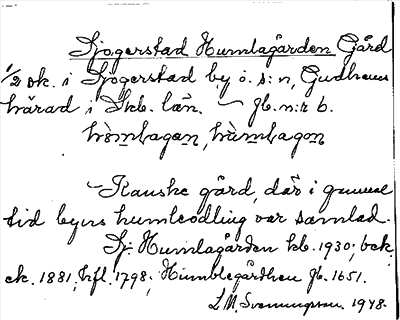 Sjogerstad Humlagården Gård
1/2 ok. i Sjogerstad by o. s:n, Gudhems
härad i Skb. län. — Jb. n:r 6.
hòmlagan, hùmlagon
Kanske gård, där i gammal
tid byns humleodling var samlad.
Sj. Humlagården kb. 1930; bok.
ek. 1881; hfl. 1798; Humblegårdhen Jb. 1651.
L M. Svenungsson. 1948.